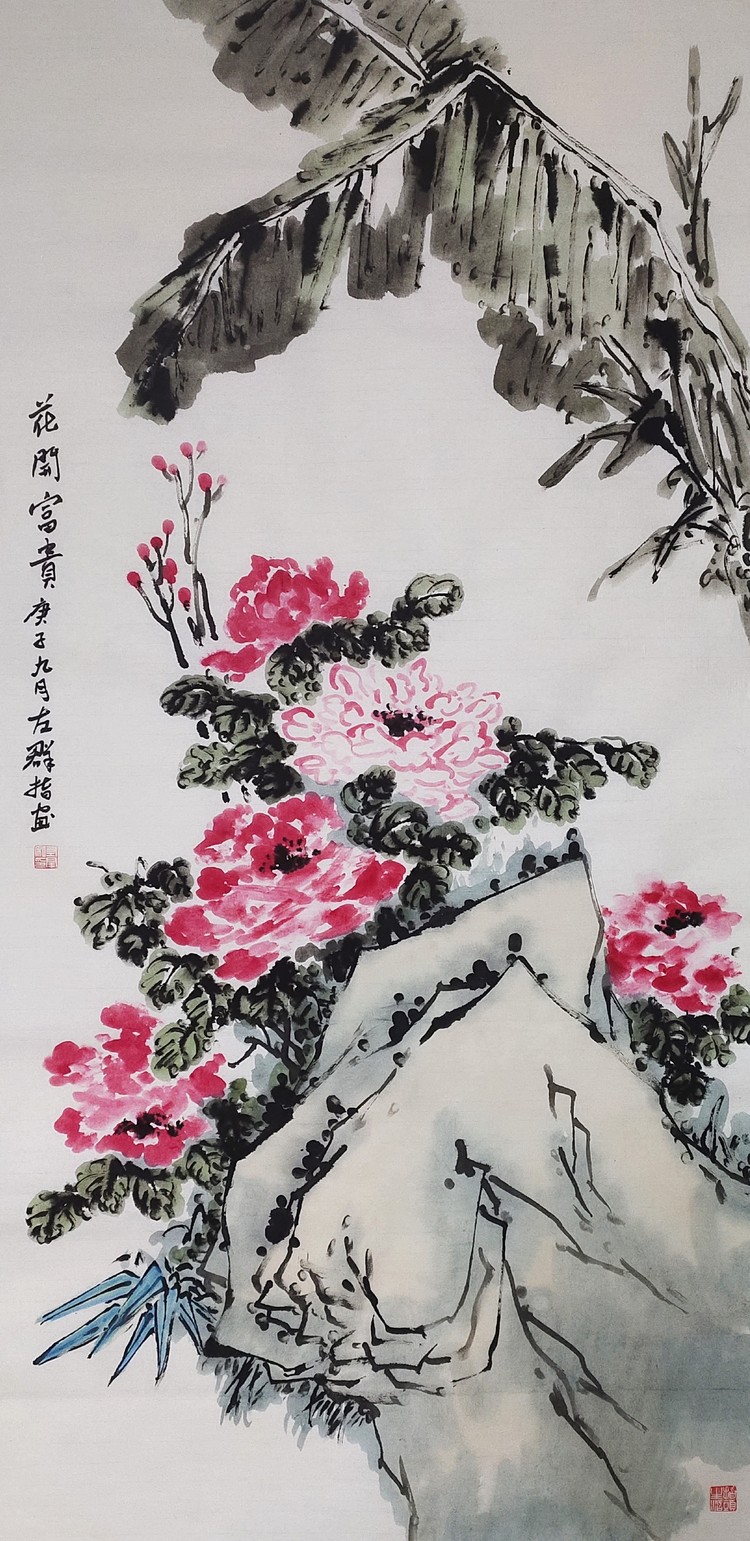 花開富貴庚子九月左群指画